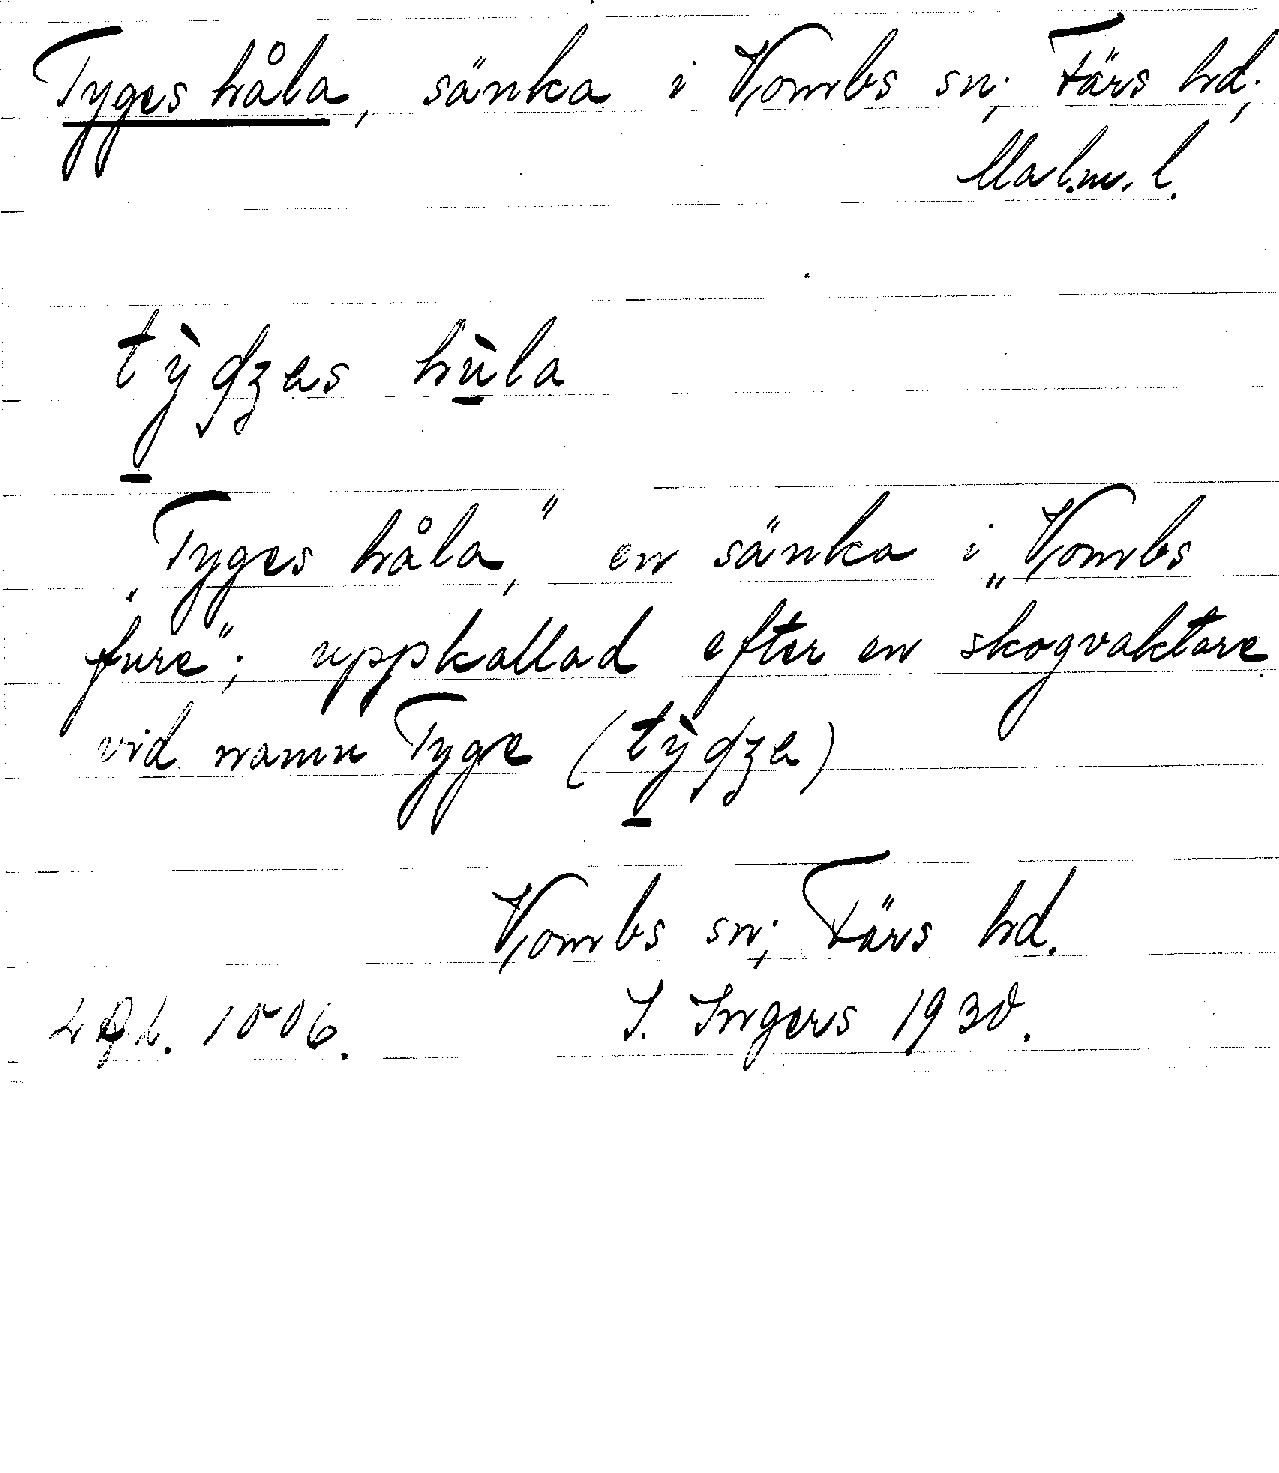 Tyges håla, sänka i Vombs sn; Färs hd;
Malm. l.
tỳdzas hùla
„Tyges håla," en sänka i „Vombs
fure"; uppkallad efter en skogvaktare
vid namn Tyge (tỳdza)
Vombs sn; Färs hd.
1006. I. Ingers 1930.